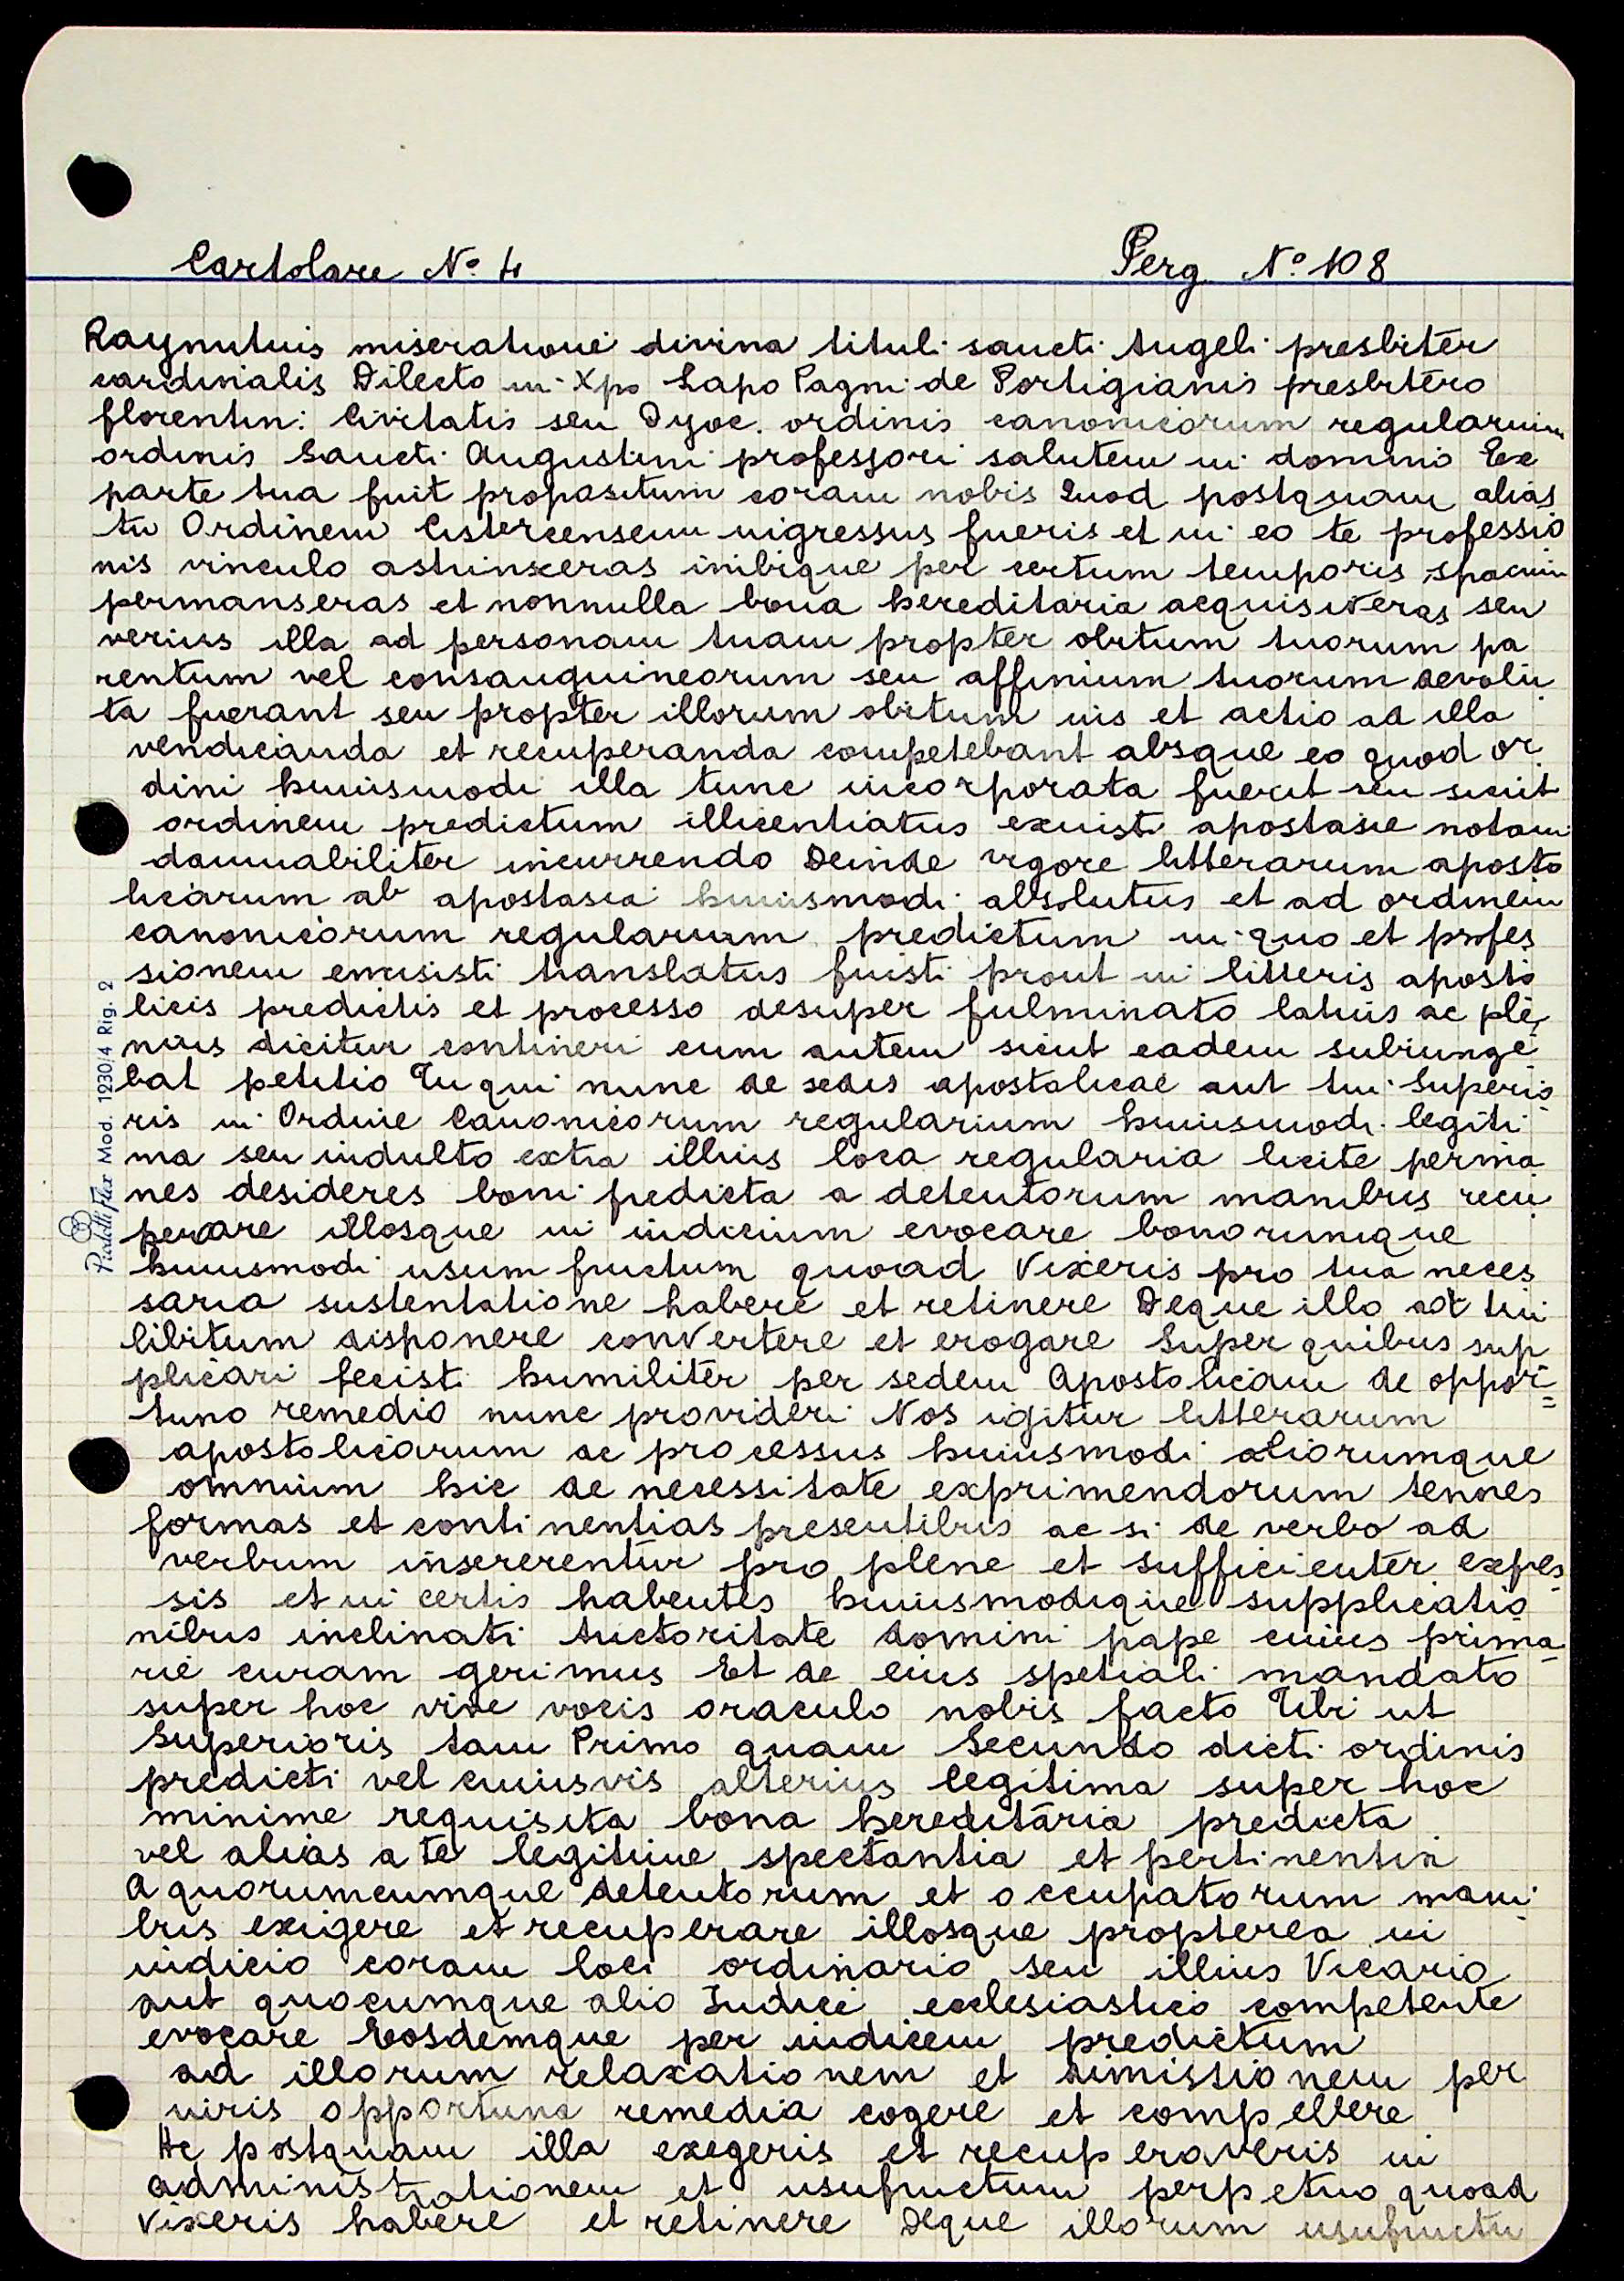 Cartolare N° 4 Perg N° 108
Raynutuis miseratione divina tituli sancti Angeli presbiter
cardinalis Dilecto in Xpo Lapo Pagni de Portigianis presbitero
florentin: Civitatis seu Dyoc. ordinis canonicorum regularium
ordinis Sancti Augustini professori salutem in domino Ex
parte tua fuit propositum coram nobis Quod postquam alias
tu Ordinem Cistercensem ingressus fueris et in eo te professio
nis vinculo astrinxeras inibique per certum temporis spacium
permanseras et nonnulla bona hereditaria acquisiveras seu
verius illa ad personam tuam propter obitum tuorum pa
rentum vel consanguineorum seu affinium tuorum devolu
ta fuerant seu propter illorum obitum ius et actio ad illa
vendicanda et recuperanda competebant absque eo quod or
dini huiusmodi illa tunc incorporata fuerit seu sicut
ordinem predictum illicentiatus exuisti apostasie notam
damnabiliter incurrendo Deinde vigore litterarum aposto
licarum ab apostasia huiusmodi absolutus et ad ordinem
canonicorum regularium predictum in quo et profes
sionem emisisti translatus fuisti prout in litteris aposto
licis predictis et processo desuper fulminato latius ac ple
nius dicitur contineri cum autem sicut eadem subiunge
bat petitio Tu qui nunc de sedis apostolicae aut tui Superio
ris in Ordine Canonicorum regularium huiusmodi legiti
ma seu indulto extra illius loca regularia licite perma
nes desideres boni predicta a detentorum manibus recu
perare illosque in iudicium evocare bonorumque
huiusmodi usum fructum quoad Vixeris pro tua neces
saria sustentatione habere et retinere Deque illo ad tui
libitum disponere convertere et erogare Super quibus sup
plicari fecisti humiliter per sedem Apostolicam de oppor=
tuno remedio nunc provideri Nos igitur litterarum
apostolicarum ac processus huiusmodi aliorumque
omnium hic de necessitate exprimendorum tenores
formas et continentias presentibus ac si de verbo ad
verbum insererentur pro plene et sufficienter expres
sis et in certis habentes huiusmodique supplicatio
nibus inclinati Auctoritate domini pape cuius prima
rie curam gerimus Et de eius spetiali mandato
super hoc vive vocis oraculo nobis facto Tibi ut
Superioris tam Primo quam Secundo dicti ordinis
predicti vel cuiusvis alterius legitima super hoc
minime requisita bona hereditaria predicta
vel alias a te legitime spectantia et pertinentia
A quorumcumque detentorum et occupatorum mani
bus exigere et recuperare illosque propterea in
iudicio coram loci ordinario seu illius Vicario
aut quocumque alio Iudice ecclesiastico competente
evocare Eosdemque per iudicem predictum
ad illorum relaxationem et dimissionem per
iuris opportuna remedia cogere et compellere
Ac postquam illa exegeris et recuperaveris in
administrationem et usufructum perpetuo quoad
Vixeris habere et retinere Deque illorum usufructu
Pialetti Flex Mod. 1230/4 Rig. 2